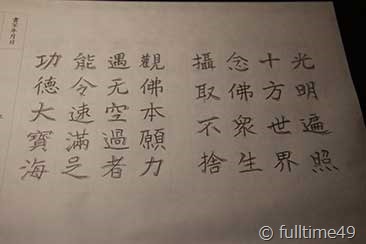 光明遍照
十方世界
念佛衆生
攝取不捨
觀佛本願力
遇无空過者
能令速滿足
功德大寶海
© fulltime49